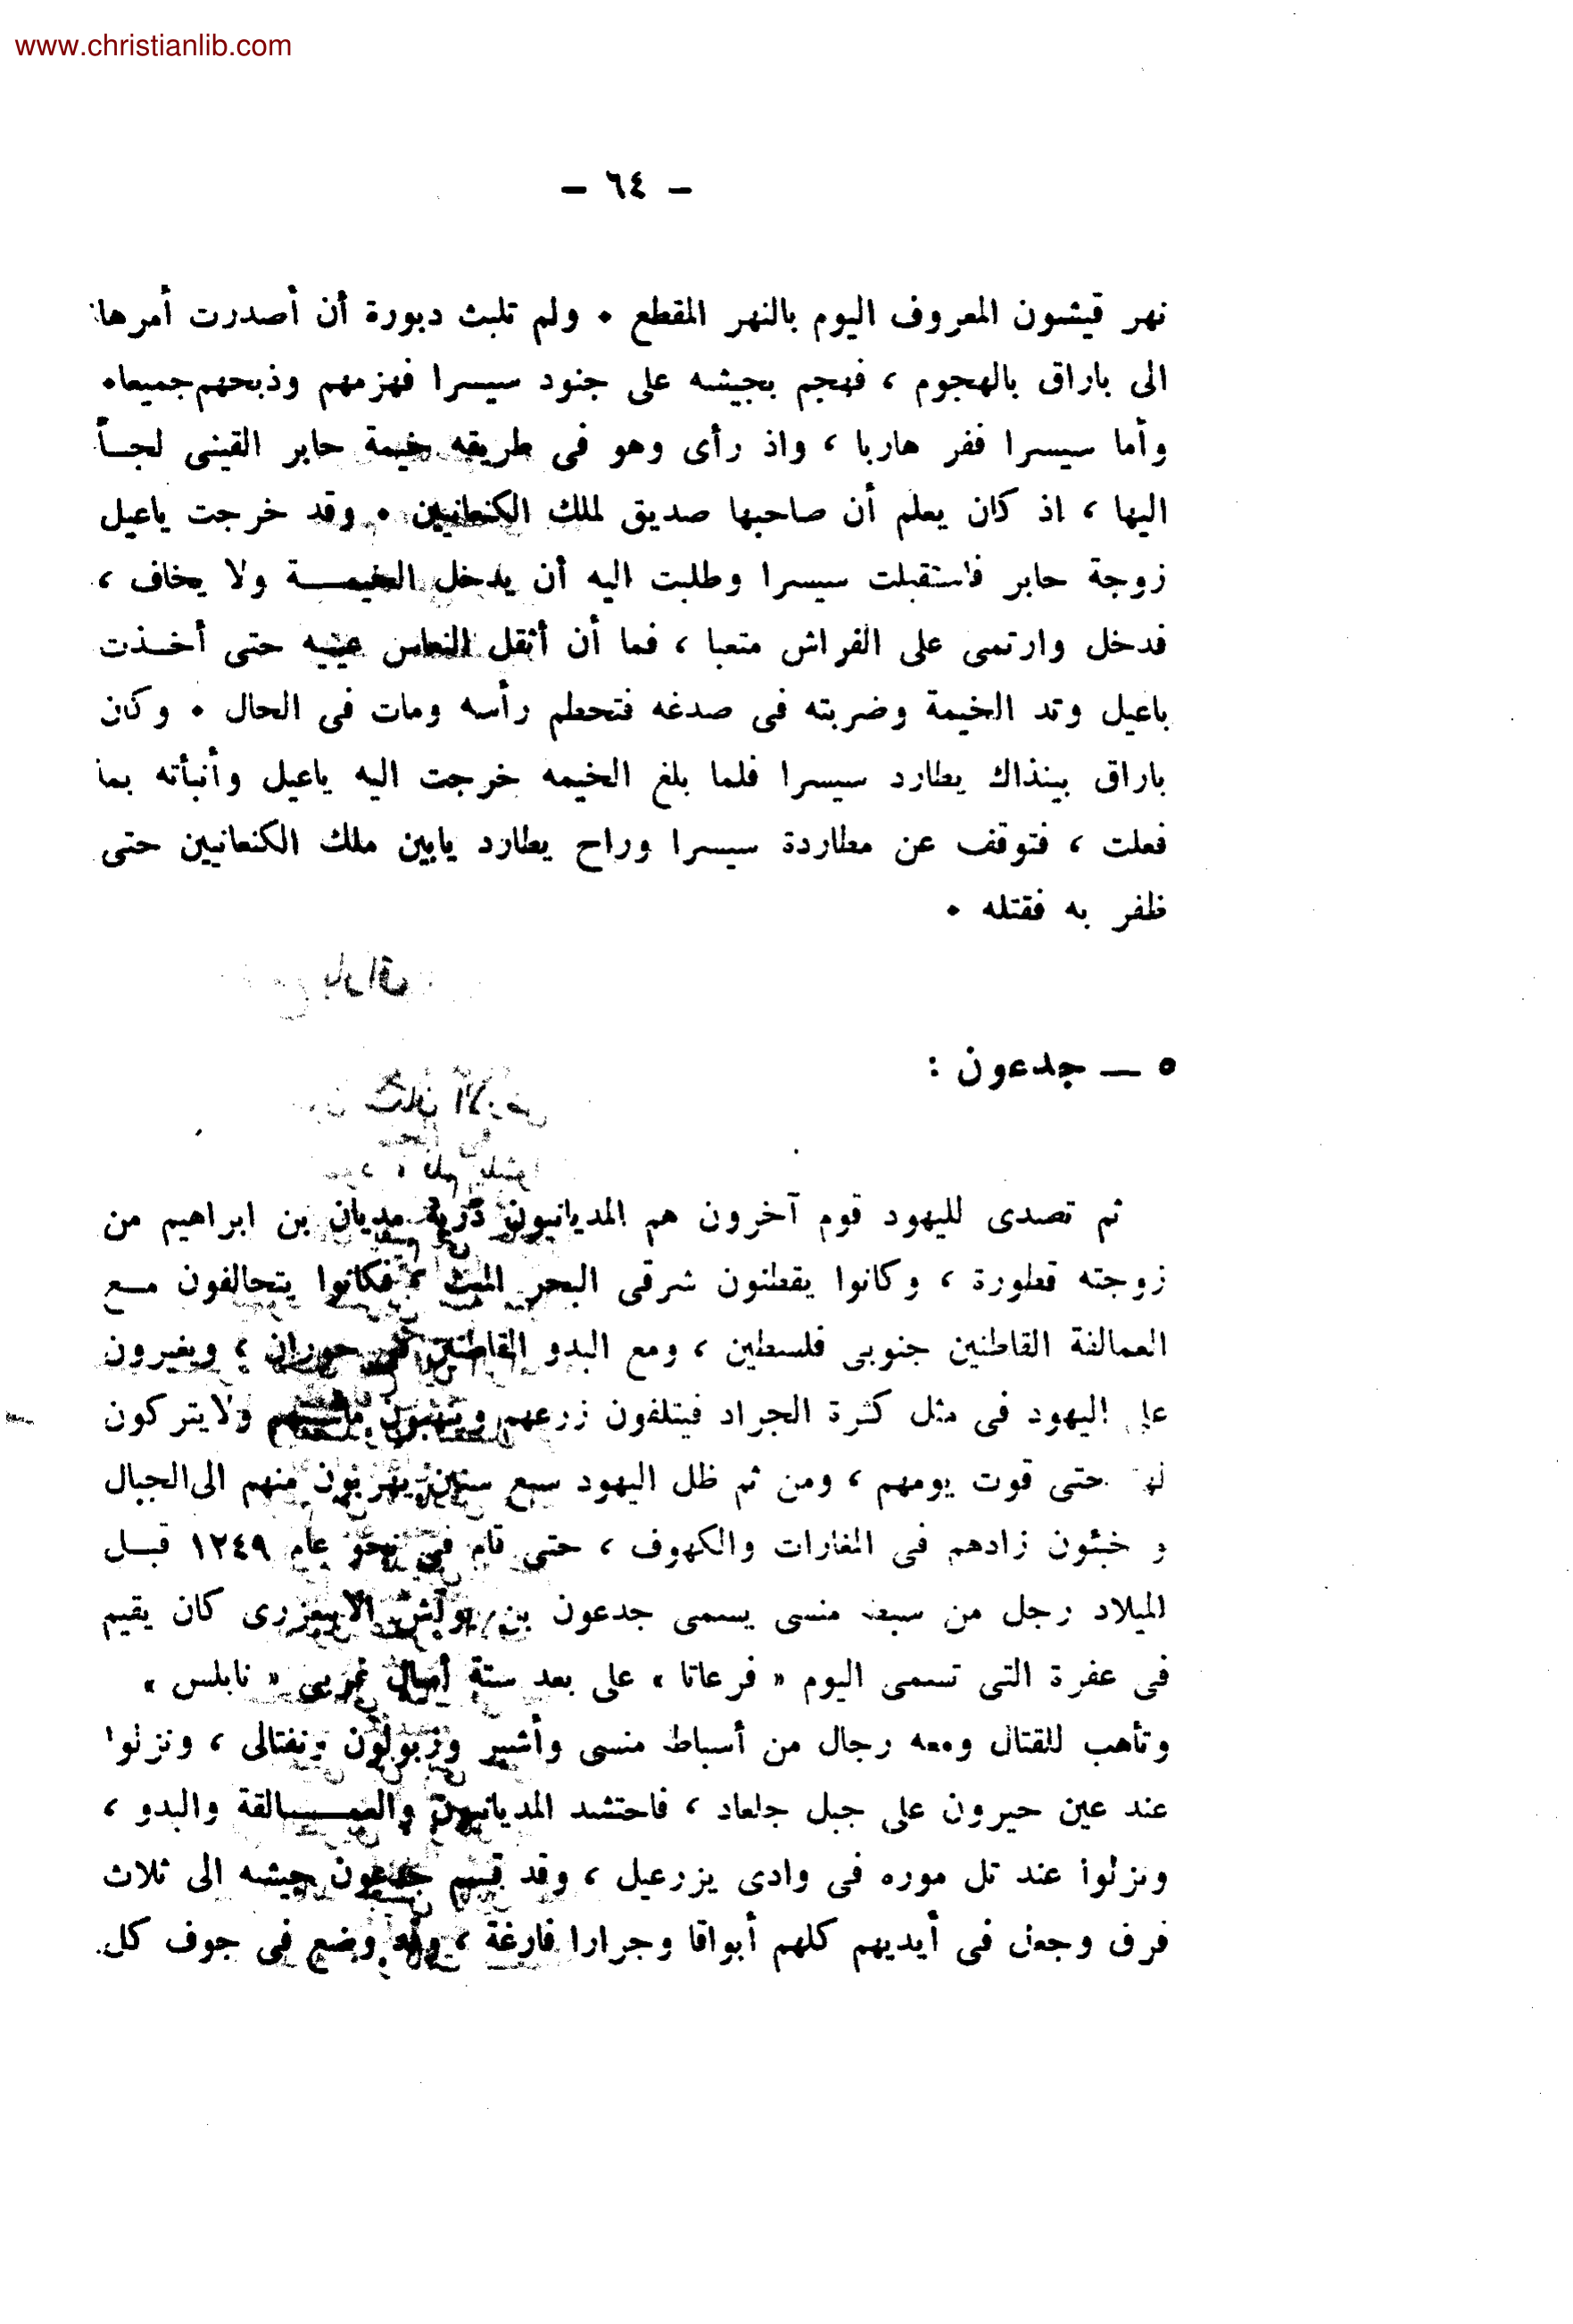 www.christianlib.com
– ٦٤ –
نهر قيشون المعروف اليوم بالنهر المقطع ٠ ولم تلبث دبورة أن أصدرت أمرها
الى باراق بالهجوم ، فهجم بجيشه على جنود سيسرا فهزمهم وذبحهم جميعا٠
وأما سيسرا ففر هاربا ، واذ رأى وهو فى طريقه خيمة حابر القينى لجــأ
اليها ، اذ كان يعلم أن صاحبها صديق لملك الكنعانيين ٠ وقد خرجت ياعيل
زوجة حابر فاستقبلت سيسرا وطلبت اليه أن يدخل الخيمــــة ولا يخاف ،
فدخل وارتمى على الفراش متعبا ، فما أن أثقل النعاس عينيه حتى أخــذت
ياعيل وتد الخيمة وضربته فى صدغه فتحطم رأسه ومات فى الحال ٠ وكان
باراق بينذاك يطارد سيسرا فلما بلغ الخيمه خرجت اليه ياعيل وأنبأته بما
فعلت ، فتوقف عن مطاردة سيسرا وراح يطارد يابين ملك الكنعانيين حتى
ظفر به فقتله ٠
٥ — جدعون :
ثم تصدى لليهود قوم آخرون هم المديانيون ذرية مديان بن ابراهيم من
زوجته قطورة ، وكانوا يقطنون شرقى البحر الميت ، فكانوا يتحالفون مــع
العمالقة القاطنين جنوبى فلسطين ، ومع البدو القاطنين فى حوران ، ويغيرون
على اليهود فى مثل كثرة الجراد فيتلفون زرعهم وينهبون ماشيتهم ولايتركون
لهم حتى قوت يومهم ، ومن ثم ظل اليهود سبع سنين يهربون منهم الى الجبال
و خبئون زادهم فى المغارات والكهوف ، حتى قام فى نحو عام ١٢٤٩ قبــل
الميلاد رجل من سبط منسى يسمى جدعون بن يوآش الابيعزرى كان يقيم
فى عفرة التى تسمى اليوم « فرعاتا » على بعد ستة أميال غربى « نابلس »
وتأهب للقتال ومعه رجال من أسباط منسى وأشير وزبولون ونفتالى ، ونزلوا
عند عين حيرون على جبل جلعاد ، فاحتشد المديانيون والعمـــــالقة والبدو ،
ونزلوا عند تل موره فى وادى يزرعيل ، وقد قسم جدعون جيشه الى ثلاث
فرق وجعل فى أيديهم كلهم أبواقا وجرارا فارغة ، وقد وضع فى جوف كل